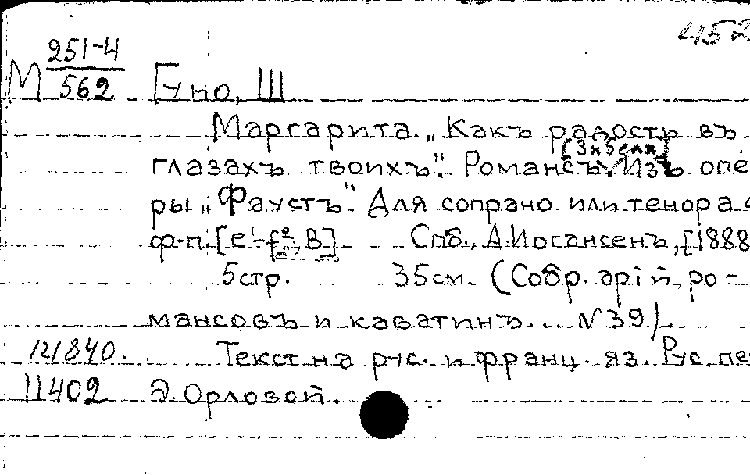 452
М 251-4/562 Гуно, Ш
Маргарита. „Какъ радость въ
глазахъ твоихъ". Романсъ [Зибеля] Изъ опе
ры „Фаустъ". Для сопрано или тенора с
ф-п. [e'-f², B] Спб., А. Иогансенъ, [1888
5 стр. 35 см. (Собр. арiй, ро-
мансовъ и каватинъ. N 39)
121840. Текст на рус. и франц. яз. Рус. пе
11402 Э. Орловой.